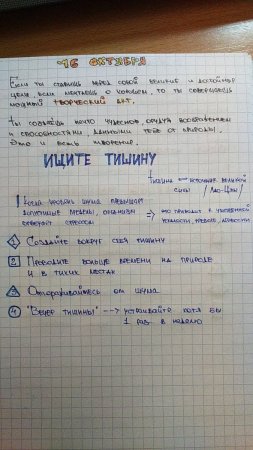 16 ОКТЯБРЯ
Если ты ставишь перед собой великие и достойные
цели, если мечтаешь о новом, то ты совершаешь
мощный творческий акт.
Ты создаёшь нечто чудесное, орудуя воображением
и способностями, данными тебе от природы.
Это и есть творение.
ИЩИТЕ ТИШИНУ
Тишина — источник великой
силы /Лао-Цзы/
! Когда уровень шума превышает
допустимые пределы, организм
отвечает стрессом
=> это приводит к умственной
усталости, тревоге,
1 Создайте вокруг себя тишину
2 Проводите больше времени на природе
и в тихих местах
3 Отгораживайтесь от шума
4 "Вечер тишины" --> устраивайте хотя бы
1 раз в неделю